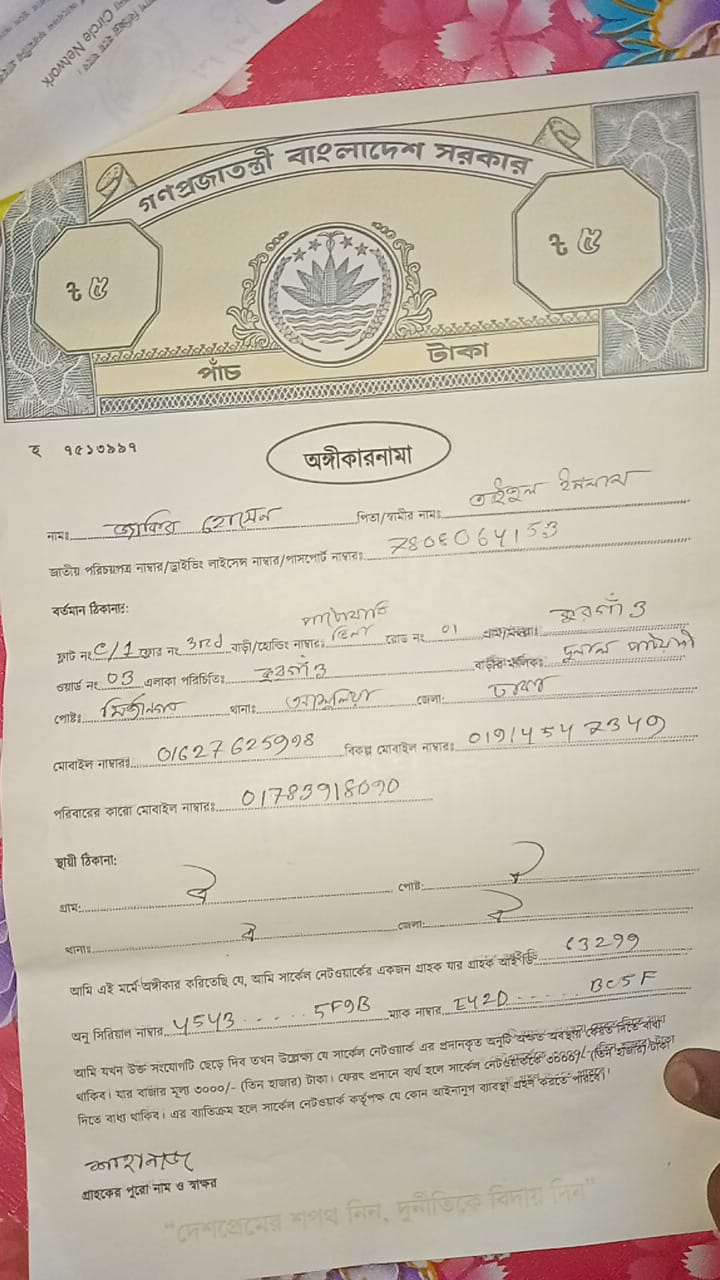 Circle Network
গণপ্রজাতন্ত্রী বাংলাদেশ সরকার
৳ ৫ ৳ ৫
পাঁচ টাকা
অঙ্গীকারনামা
নামঃ জাকির হোসেন পিতা/স্বামীর নামঃ ইসলাম
জাতীয় পরিচয়পত্র নাম্বার/ড্রাইভিং লাইসেন্স নাম্বার/পাসপোর্ট নাম্বারঃ 7806064153
বর্তমান ঠিকানাঃ
ফ্লাট নংঃ C/1 ফ্লোর নং 3rd বাড়ী/হোল্ডিং নাম্বারঃ ভিলা রোড নং 01 গ্রাম/মহল্লাঃ কুরগাঁও
ওয়ার্ড নং 03 এলাকা পরিচিতিঃ কুরগাঁও বাড়ীর মালিকঃ দুলাল
পোষ্টঃ মির্জানগর থানাঃ আশুলিয়া জেলাঃ ঢাকা
মোবাইল নাম্বারঃ 01627625998 বিকল্প মোবাইল নাম্বারঃ 01914547349
পরিবারের কারো মোবাইল নাম্বারঃ 01783918090
স্থায়ী ঠিকানা:
গ্রাম: ঐ পোষ্ট: ঐ
থানাঃ ঐ জেলা: ঐ
আমি এই মর্মে অঙ্গীকার করিতেছি যে, আমি সার্কেল নেটওয়ার্কের একজন গ্রাহক যার গ্রাহক আইডিঃ 63299
অনু সিরিয়াল নাম্বার 4543 ..... 5F9B ম্যাক নাম্বার E42D ..... BC5F
আমি যখন উক্ত সংযোগটি ছেড়ে দিব তখন উল্লেক্ষ্য যে সার্কেল নেটওয়ার্ক এর প্রদানকৃত অনুটি অক্ষত অবস্থায় ফেরত দিতে বাধ্য
থাকিব। যার বাজার মূল্য ৩০০০/- (তিন হাজার) টাকা। ফেরৎ প্রদানে ব্যর্থ হলে সার্কেল নেটওয়ার্ককে ৩০০০/- (তিন হাজার) টাকা
দিতে বাধ্য থাকিব। এর ব্যতিক্রম হলে সার্কেল নেটওয়ার্ক কর্তৃপক্ষ যে কোন আইনানুগ ব্যাবস্থা গ্রহন করতে পারিবে।
শাহনাজ
গ্রাহকের পুরো নাম ও স্বাক্ষর
“দেশপ্রেমের শপথ নিন, দুর্নীতিকে বিদায় দিন”